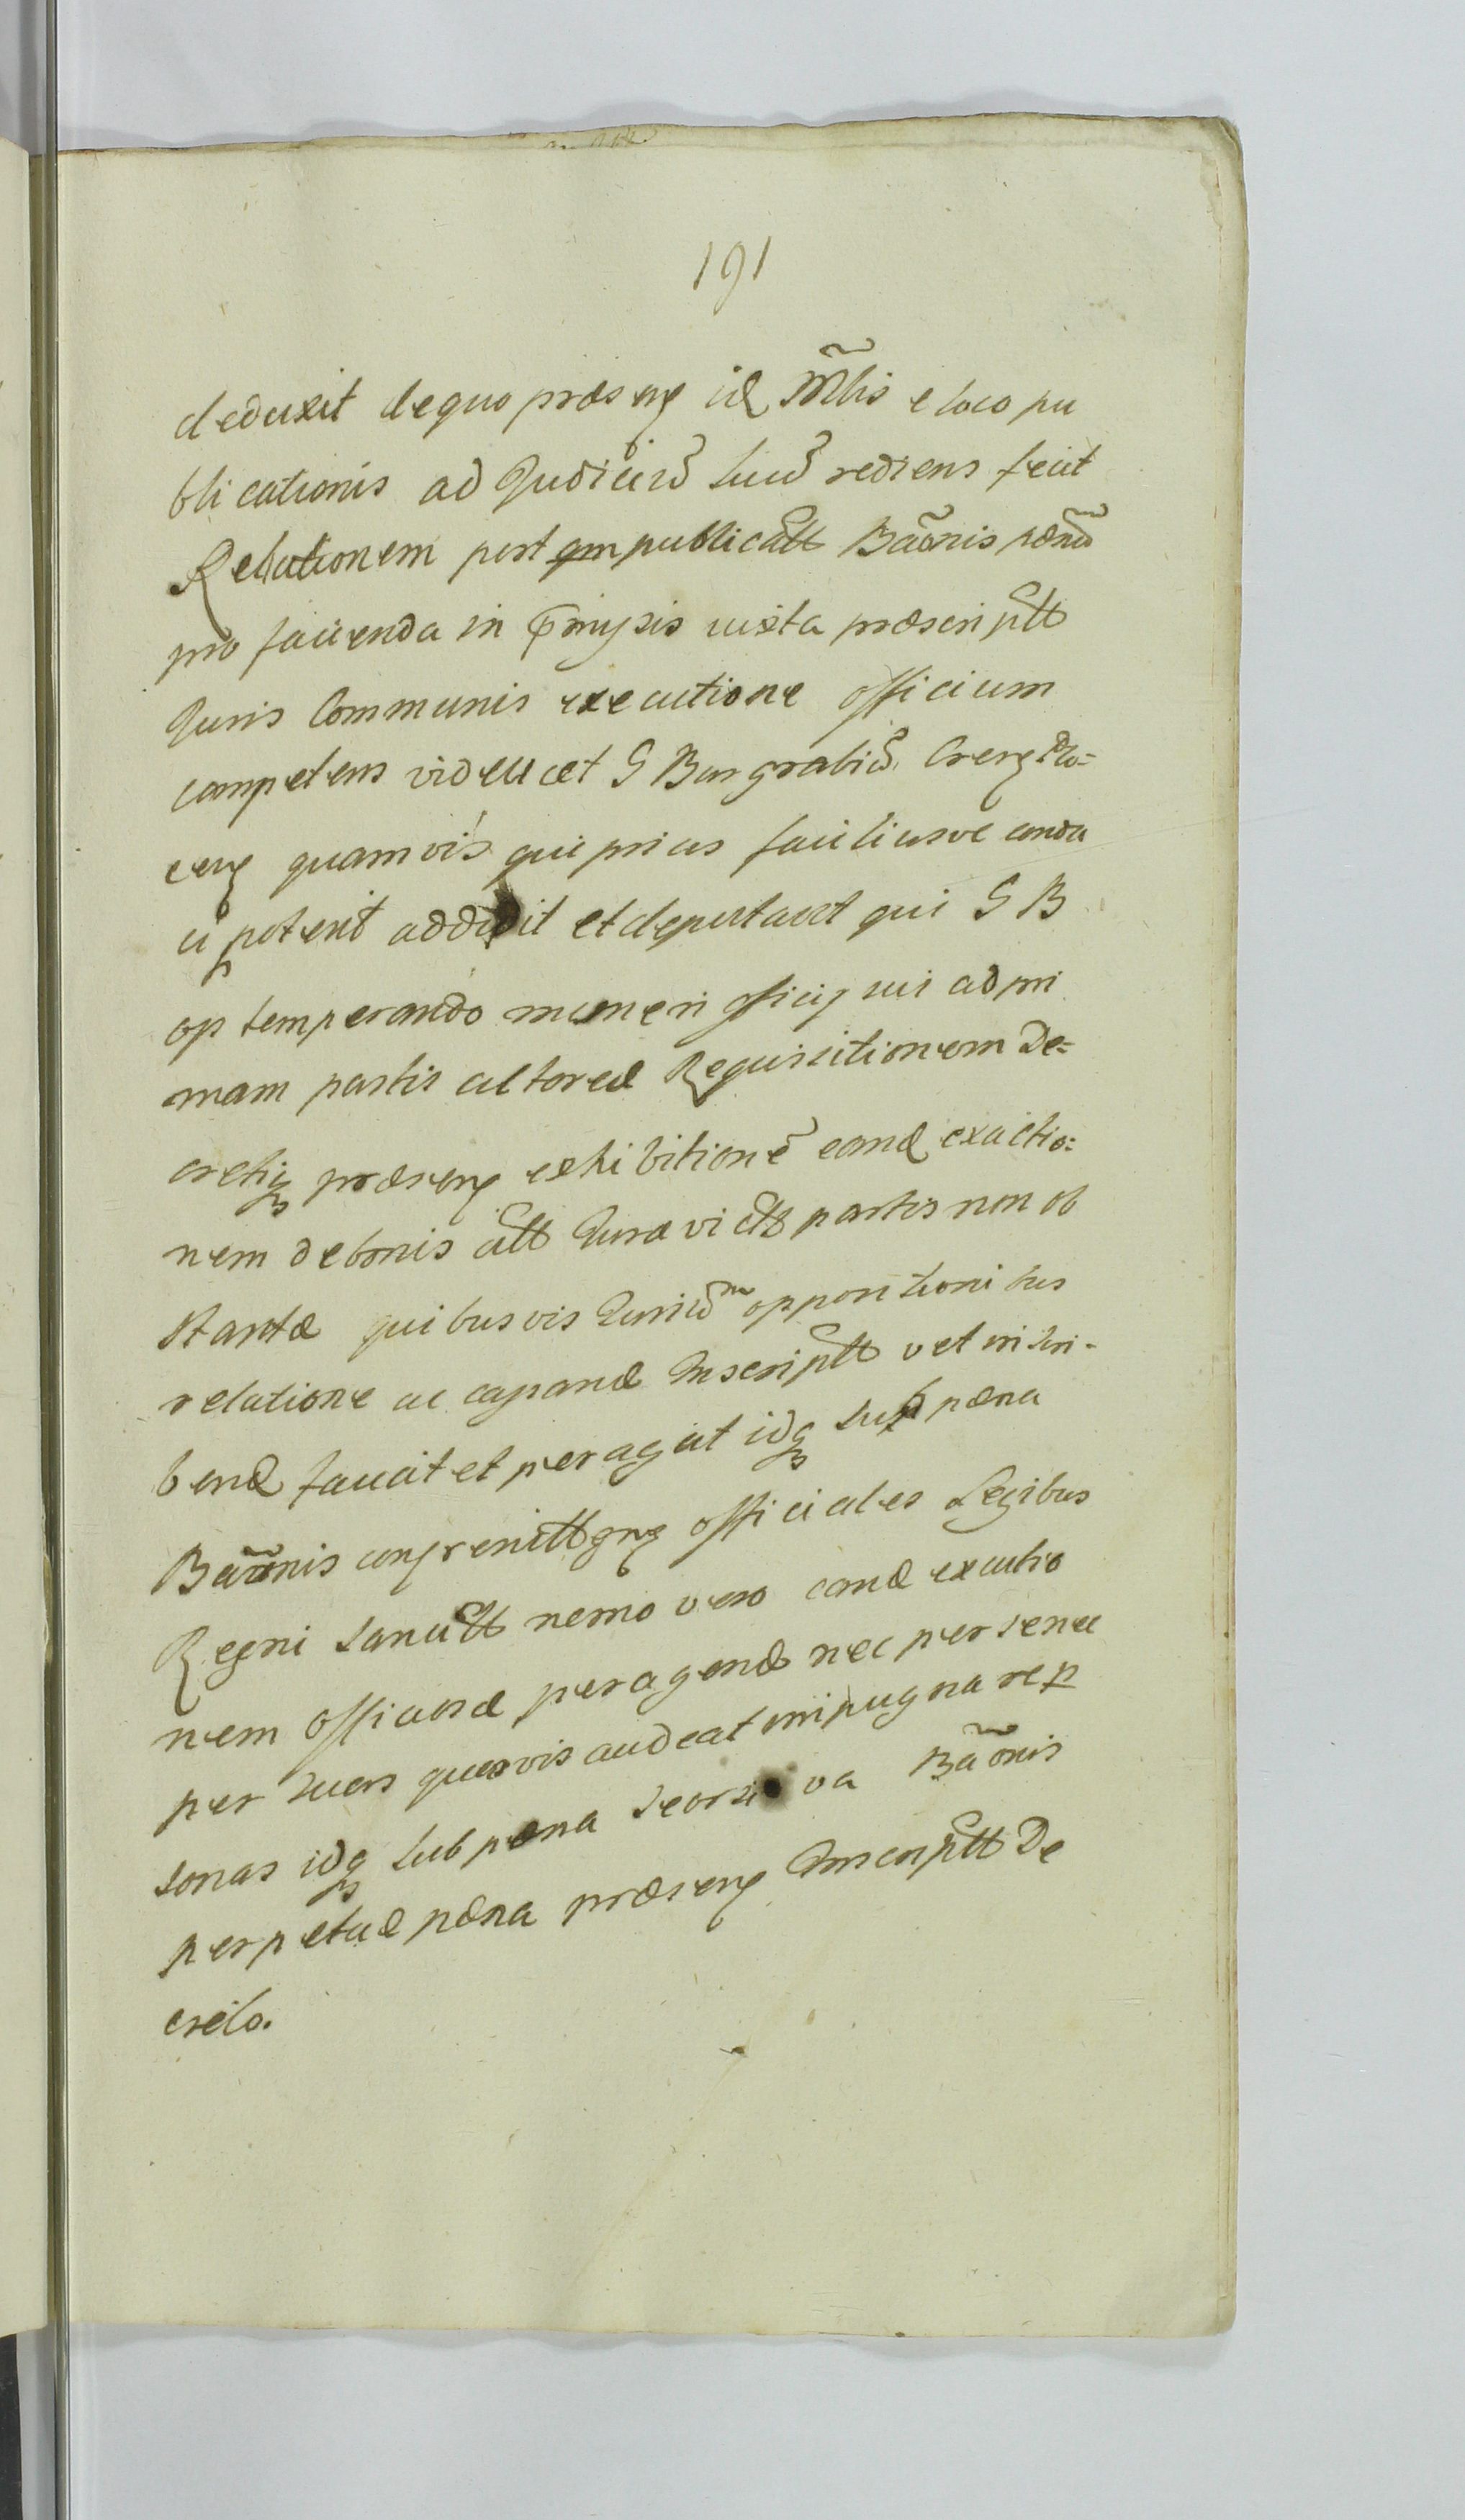 191
deduxit de quo præseng id Mlis e loco pu
blicationis ad Judiciũ suũ rediens fecit
Relationem post qm publicatt Bãonis pœnã
pro facienda in præmysis iuxta præscriptt
Juris Communis executione officium
competens videlicet G Burgrabiũ
ceng quamvis qui prius faciliusve condu
ci poterit addidit et deputavit qui G B
optemperando muneri officij sui ad pri
mam partis actoreæ Requisitionem De=
cretiq præseng exhibitionẽ eand exactio=
nem de bonis att Jure victt partis non ob
stantæ quibusvis Juriũm oppositionibus
relatione ac capand Inscriptt vel in scri-
bend faciat et peragat idq sub pœna
Bãonis congrenittgng officiales Legibus
Regni sancitt nemo vero eand executio
nem officiosæ peragend nec per se nec
per suas quasvis audeat impugnare p
sonas idq sub pœna seorsiva Bãonis
perpetuæ pœna præseng Inscriptt De
creto.